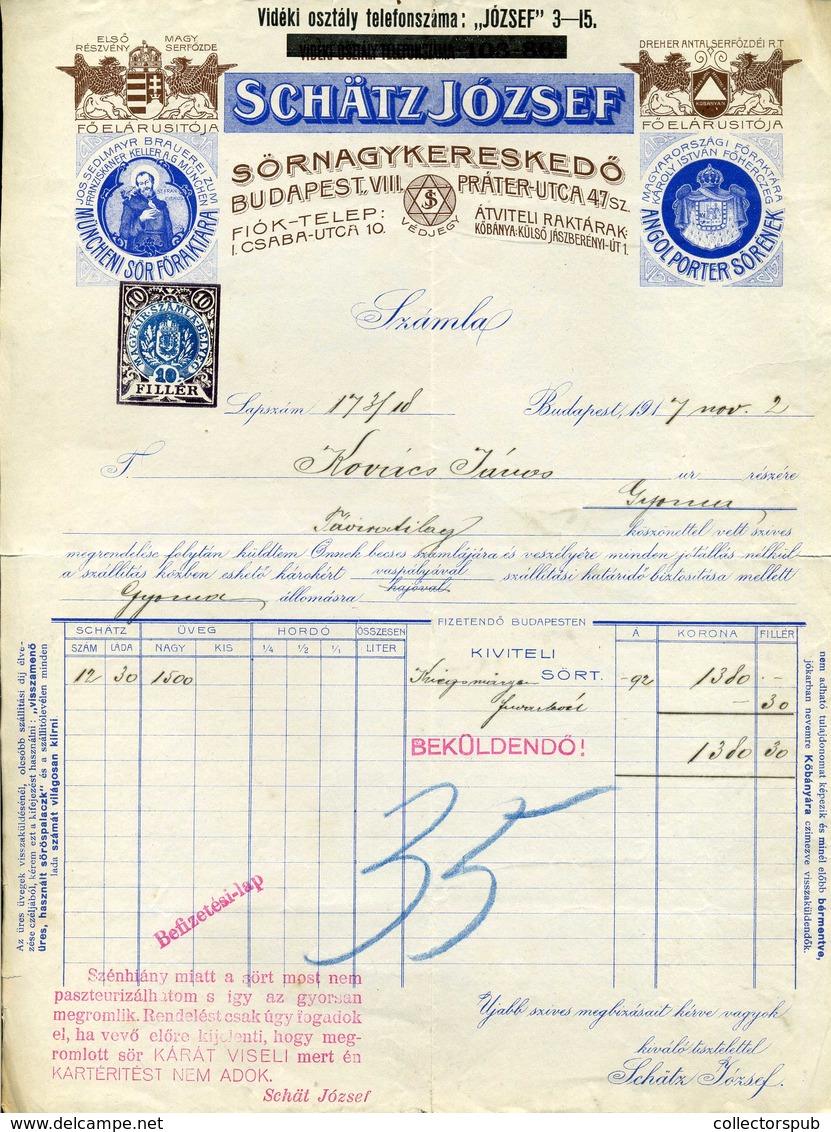 Vidéki osztály telefonszáma: „JÓZSEF" 3—15.
VIDÉKI OSZTÁLY TELEFONSZÁMA
ELSŐ MAGY.
RÉSZVÉNY SERFŐZDE
FŐELÁRUSITÓJA
DREHER ANTAL SERFŐZDÉI R.T
KŐBÁNYAN
FŐELÁRUSITÓJA
SCHÄTZ JÓZSEF
SÖRNAGYKERESKEDŐ
BUDAPEST, VIII. PRÁTER-UTCA 47 SZ.
FIÓK-TELEP:
I. CSABA-UTCA 10.
VÉDJEGY
ÁTVITELI RAKTÁRAK:
KŐBÁNYA: KÜLSŐ JÁSZBERÉNYI-ÚT 1.
JOS. SEDLMAYR BRAUEREI ZUM
FRANZISKANER KELLER A.G. MÜNCHEN
MÜNCHENI SÖR FŐRAKTÁRA
MAGYARORSZÁGI FŐRAKTÁRA
KÁROLY ISTVÁN FŐHERCZEG
ANGOL PORTER SÖRÉNEK
10 10
MAGY. KIR. SZÁMLA-BÉLYEG
10
FILLÉR
Számla
Lapszám 173/18 Budapest, 1917 nov. 2
T. Kovács János ur részére
Gyoma
Táviratilag köszönettel vett szives
megrendelése folytán küldtem Önnek becses számlájára és veszélyére minden jótállás nélkül
a szállítás közben eshető károkért vaspályával szállítási határidő biztosítása mellett
hajóval
Gyoma állomásra
SCHÄTZ ÜVEG HORDÓ ÖSSZESEN FIZETENDŐ BUDAPESTEN Á KORONA FILLÉR
SZÁM LÁDA NAGY KIS 1/4 1/2 1/1 LITER KIVITELI
SÖRT.
12 30 1500 -92 1380 --
- 30
BEKÜLDENDŐ! 1380 30
35
Befizetési-lap
Az üres üvegek visszaküldésénél, olcsóbb szállítási díj élve-
zése czéljából, kérem ezt a kifejezést használni: „visszamenő
üres, használt söröspalaczk" és a szállítólevélen minden
láda számát világosan kiírni.
nem adható tulajdonomat képezik és minél előbb bérmentve,
jókarban nevemre Kőbányára czimezve visszaküldendők.
Szénhiány miatt a sört most nem
paszteurizálhatom s így az gyorsan
megromlik. Rendelést csak úgy fogadok
el, ha vevő előre kijelenti, hogy meg-
romlott sör KÁRÁT VISELI mert én
KÁRTÉRITÉST NEM ADOK.
Schät József
Ujabb szives megbizásait kérve vagyok
kiváló tisztelettel
Schätz József.
collectorspub.com